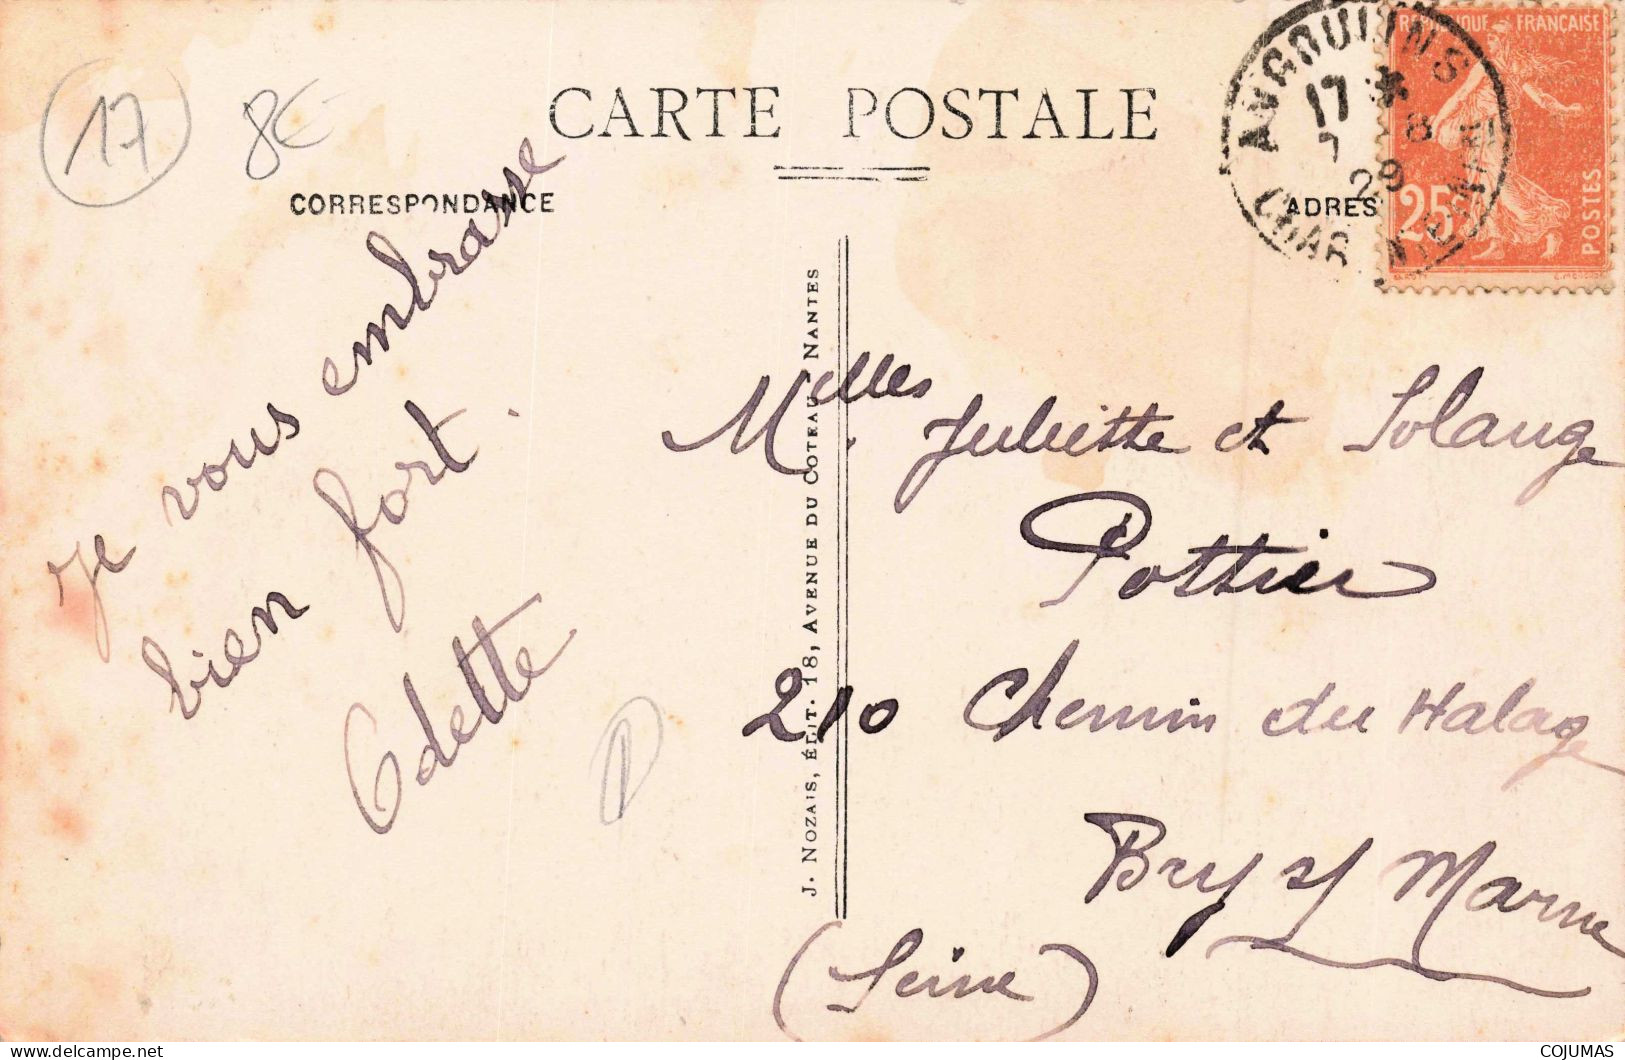 17
8€
CARTE POSTALE
CORRESPONDANCE
ADRES
ANGOULINS
17 *
7 8
29
CHAR NTE INF
REPUBLIQUE FRANÇAISE
25
POSTES
Je vous embrasse
bien fort.
Odette
J. NOZAIS, ÉDIT. 18, AVENUE DU COTEAU NANTES
Melles Juliette et Solange
Pottier
210 Chemin du Halage
Bry s/ Marne
(Seine)
delcampe.net
COJUMAS